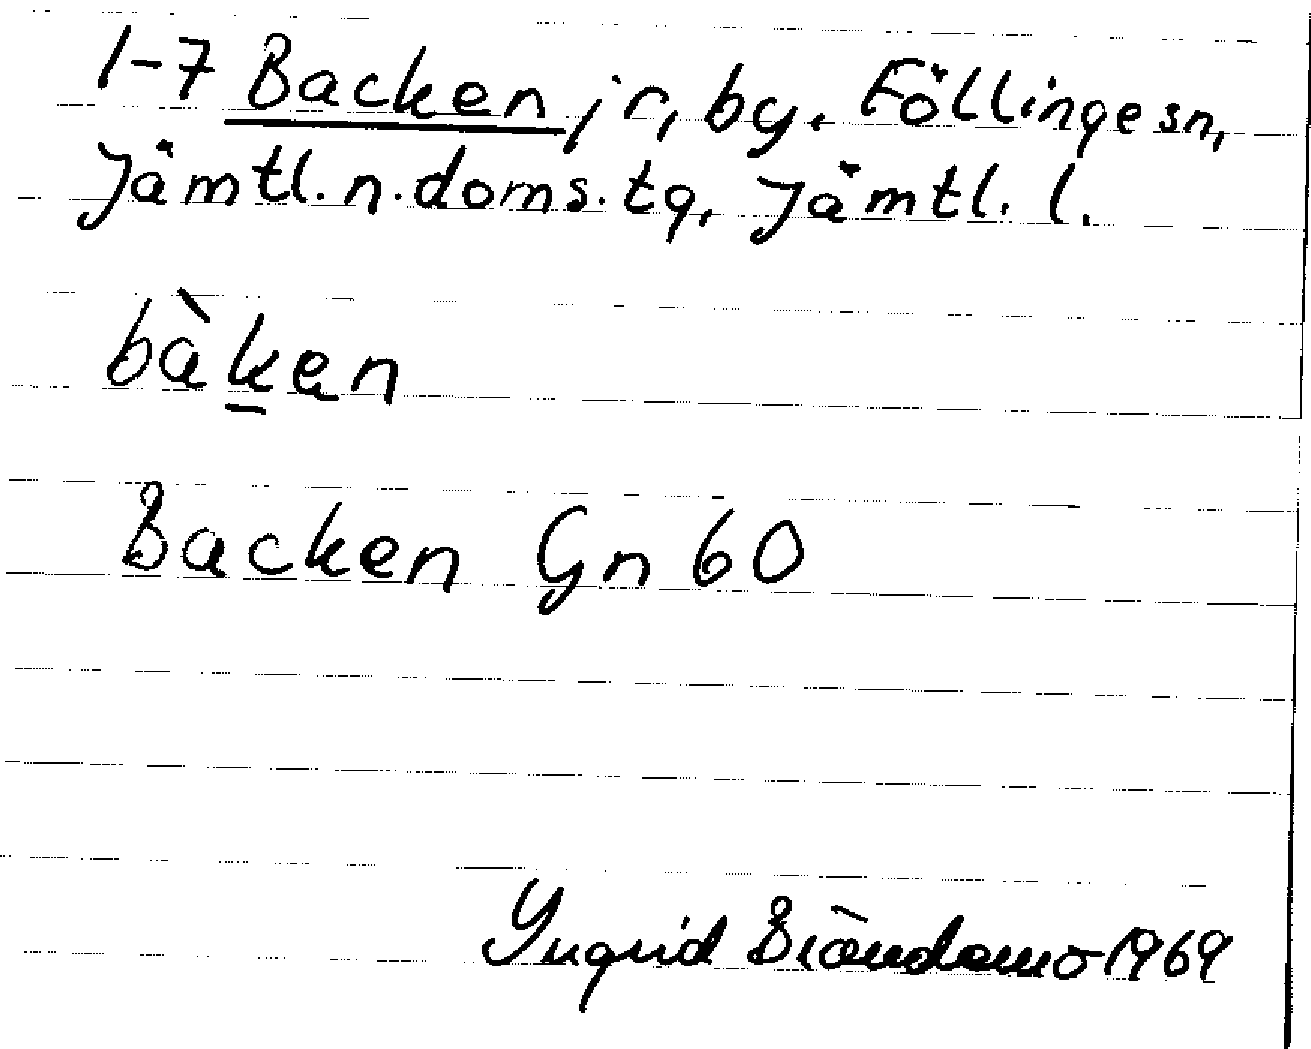 1-7 Backen, jr, by. Föllinge sn,
Jämtl. n. doms. tg, Jämtl. l.
bàken
Backen Gn 60
Ingrid 1969